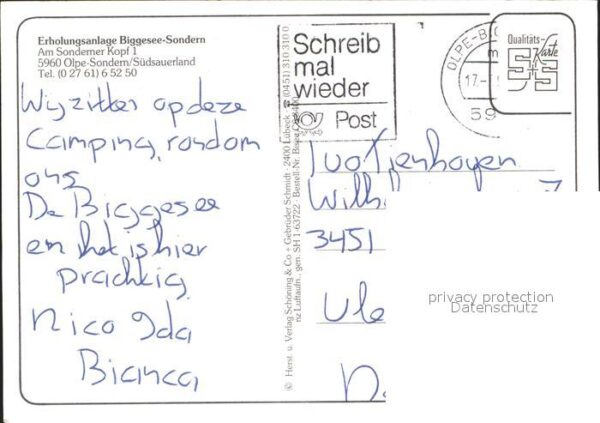 Erholungsanlage Biggesee-Sondern
Am Sonderner Kopf 1
5960 Olpe-Sondern/Südsauerland
Tel. (0 27 61) 6 52 50
Wij zitten op deze
Camping, rondom
ons
De Biggesee
en het is hier
prachtig
Nico Ida
Bianca
© Herst. u. Verlag Schöning & Co + Gebrüder Schmidt · 2400 Lübeck · (0451) 310 310 0
nz Luftaufn., gen. SH 1-63722 · Bestell-Nr.
Schreib
mal
wieder
Post
OLPE-B
17.-
59
Qualitäts-
Karte
Wilh
3451
Ule
N.
privacy protection
Datenschutz